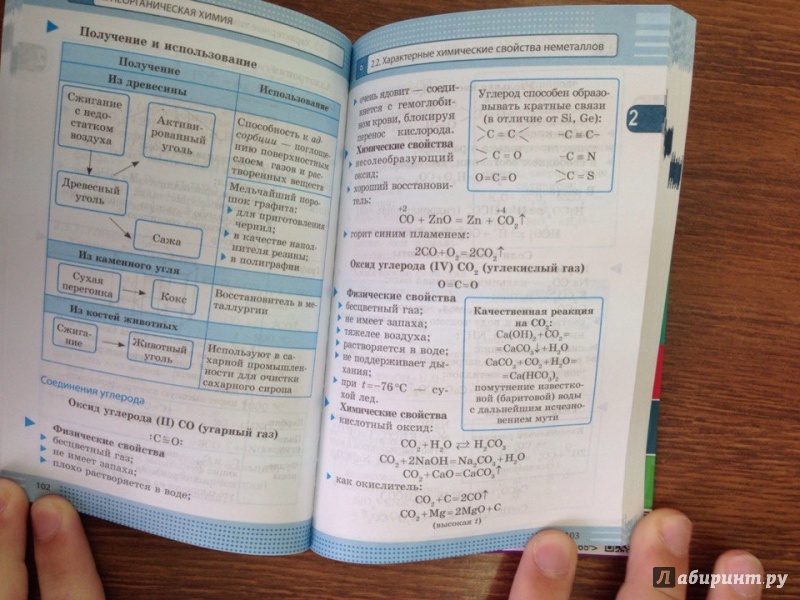 НЕОРГАНИЧЕСКАЯ ХИМИЯ
Получение и использование
Получение
Использование
Из древесины
Сжигание
с недо-
статком
воздуха
Активи-
рованный
уголь
Древесный
уголь
Сажа
Способность к ад-
сорбции — поглоще-
нию поверхностным
слоем газов и рас-
творенных веществ
Мельчайший поро-
шок графита:
для приготовления
чернил;
в качестве напол-
нителя резины;
в полиграфии
Из каменного угля
Сухая
перегонка
Кокс
Восстановитель в ме-
таллургии
Из костей животных
Сжига-
ние
Животный
уголь
Используют в са-
харной промышлен-
ности для очистки
сахарного сиропа
Соединения углерода
Оксид углерода (II) CO (угарный газ)
:C≡O:
Физические свойства
бесцветный газ;
не имеет запаха;
плохо растворяется в воде;
102
2.2. Характерные химические свойства неметаллов
2
очень ядовит — соеди-
няется с гемоглоби-
ном крови, блокируя
перенос кислорода.
Химические свойства
несолеобразующий
оксид;
хороший восстанови-
тель:
Углерод способен образо-
вывать кратные связи
(в отличие от Si, Ge):
>C = C<   –C ≡ C–
>C = O   –C ≡ N
O = C = O   >C = S
+2 +4
CO + ZnO = Zn + CO₂↑
горит синим пламенем:
2CO + O₂ = 2CO₂↑
Оксид углерода (IV) CO₂ (углекислый газ)
O = C = O
Физические свойства
бесцветный газ;
не имеет запаха;
тяжелее воздуха;
растворяется в воде;
не поддерживает ды-
хания;
при t = –76 °C — су-
хой лед.
Качественная реакция
на CO₂:
Ca(OH)₂ + CO₂ =
= CaCO₃↓ + H₂O
CaCO₃ + CO₂ + H₂O =
= Ca(HCO₃)₂
помутнение известко-
вой (баритовой) воды
с дальнейшим исчезно-
вением мути
Химические свойства
кислотный оксид:
CO₂ + H₂O ⇄ H₂CO₃
CO₂ + 2NaOH = Na₂CO₃ + H₂O
CO₂ + CaO = CaCO₃
как окислитель:
CO₂ + C = 2CO↑
CO₂ + Mg = 2MgO + C
(высокая t)
103
Лабиринт.ру